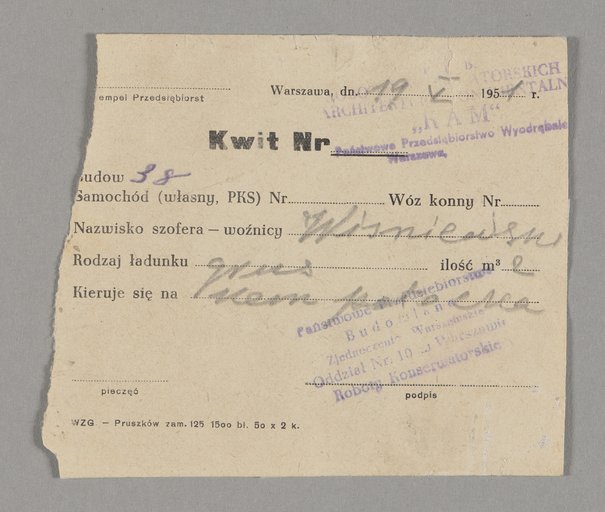 B.
ATORSKICH
Warszawa, dn. 19 V 1951 r.
ARCHITEK MENTALN
empel Przedsiębiorst
„KAM"
Kwit Nr
Państwowe Przedsiębiorstwo Wyodrębnio
Warszawa,
udow 38
Samochód (własny, PKS) Nr Wóz konny Nr
Nazwisko szofera – woźnicy Wiśniewski
Rodzaj ładunku gruz ilość m³ 2
Kieruje się na
Państwowe Przedsiębiorstwo
Budowlane
Zjednoczenie Warszawskie
Oddział Nr. 10 w Warszawie
Roboty Konserwatorskie
pieczęć podpis
WZG – Pruszków zam. 125 1500 bl. 50 x 2 k.